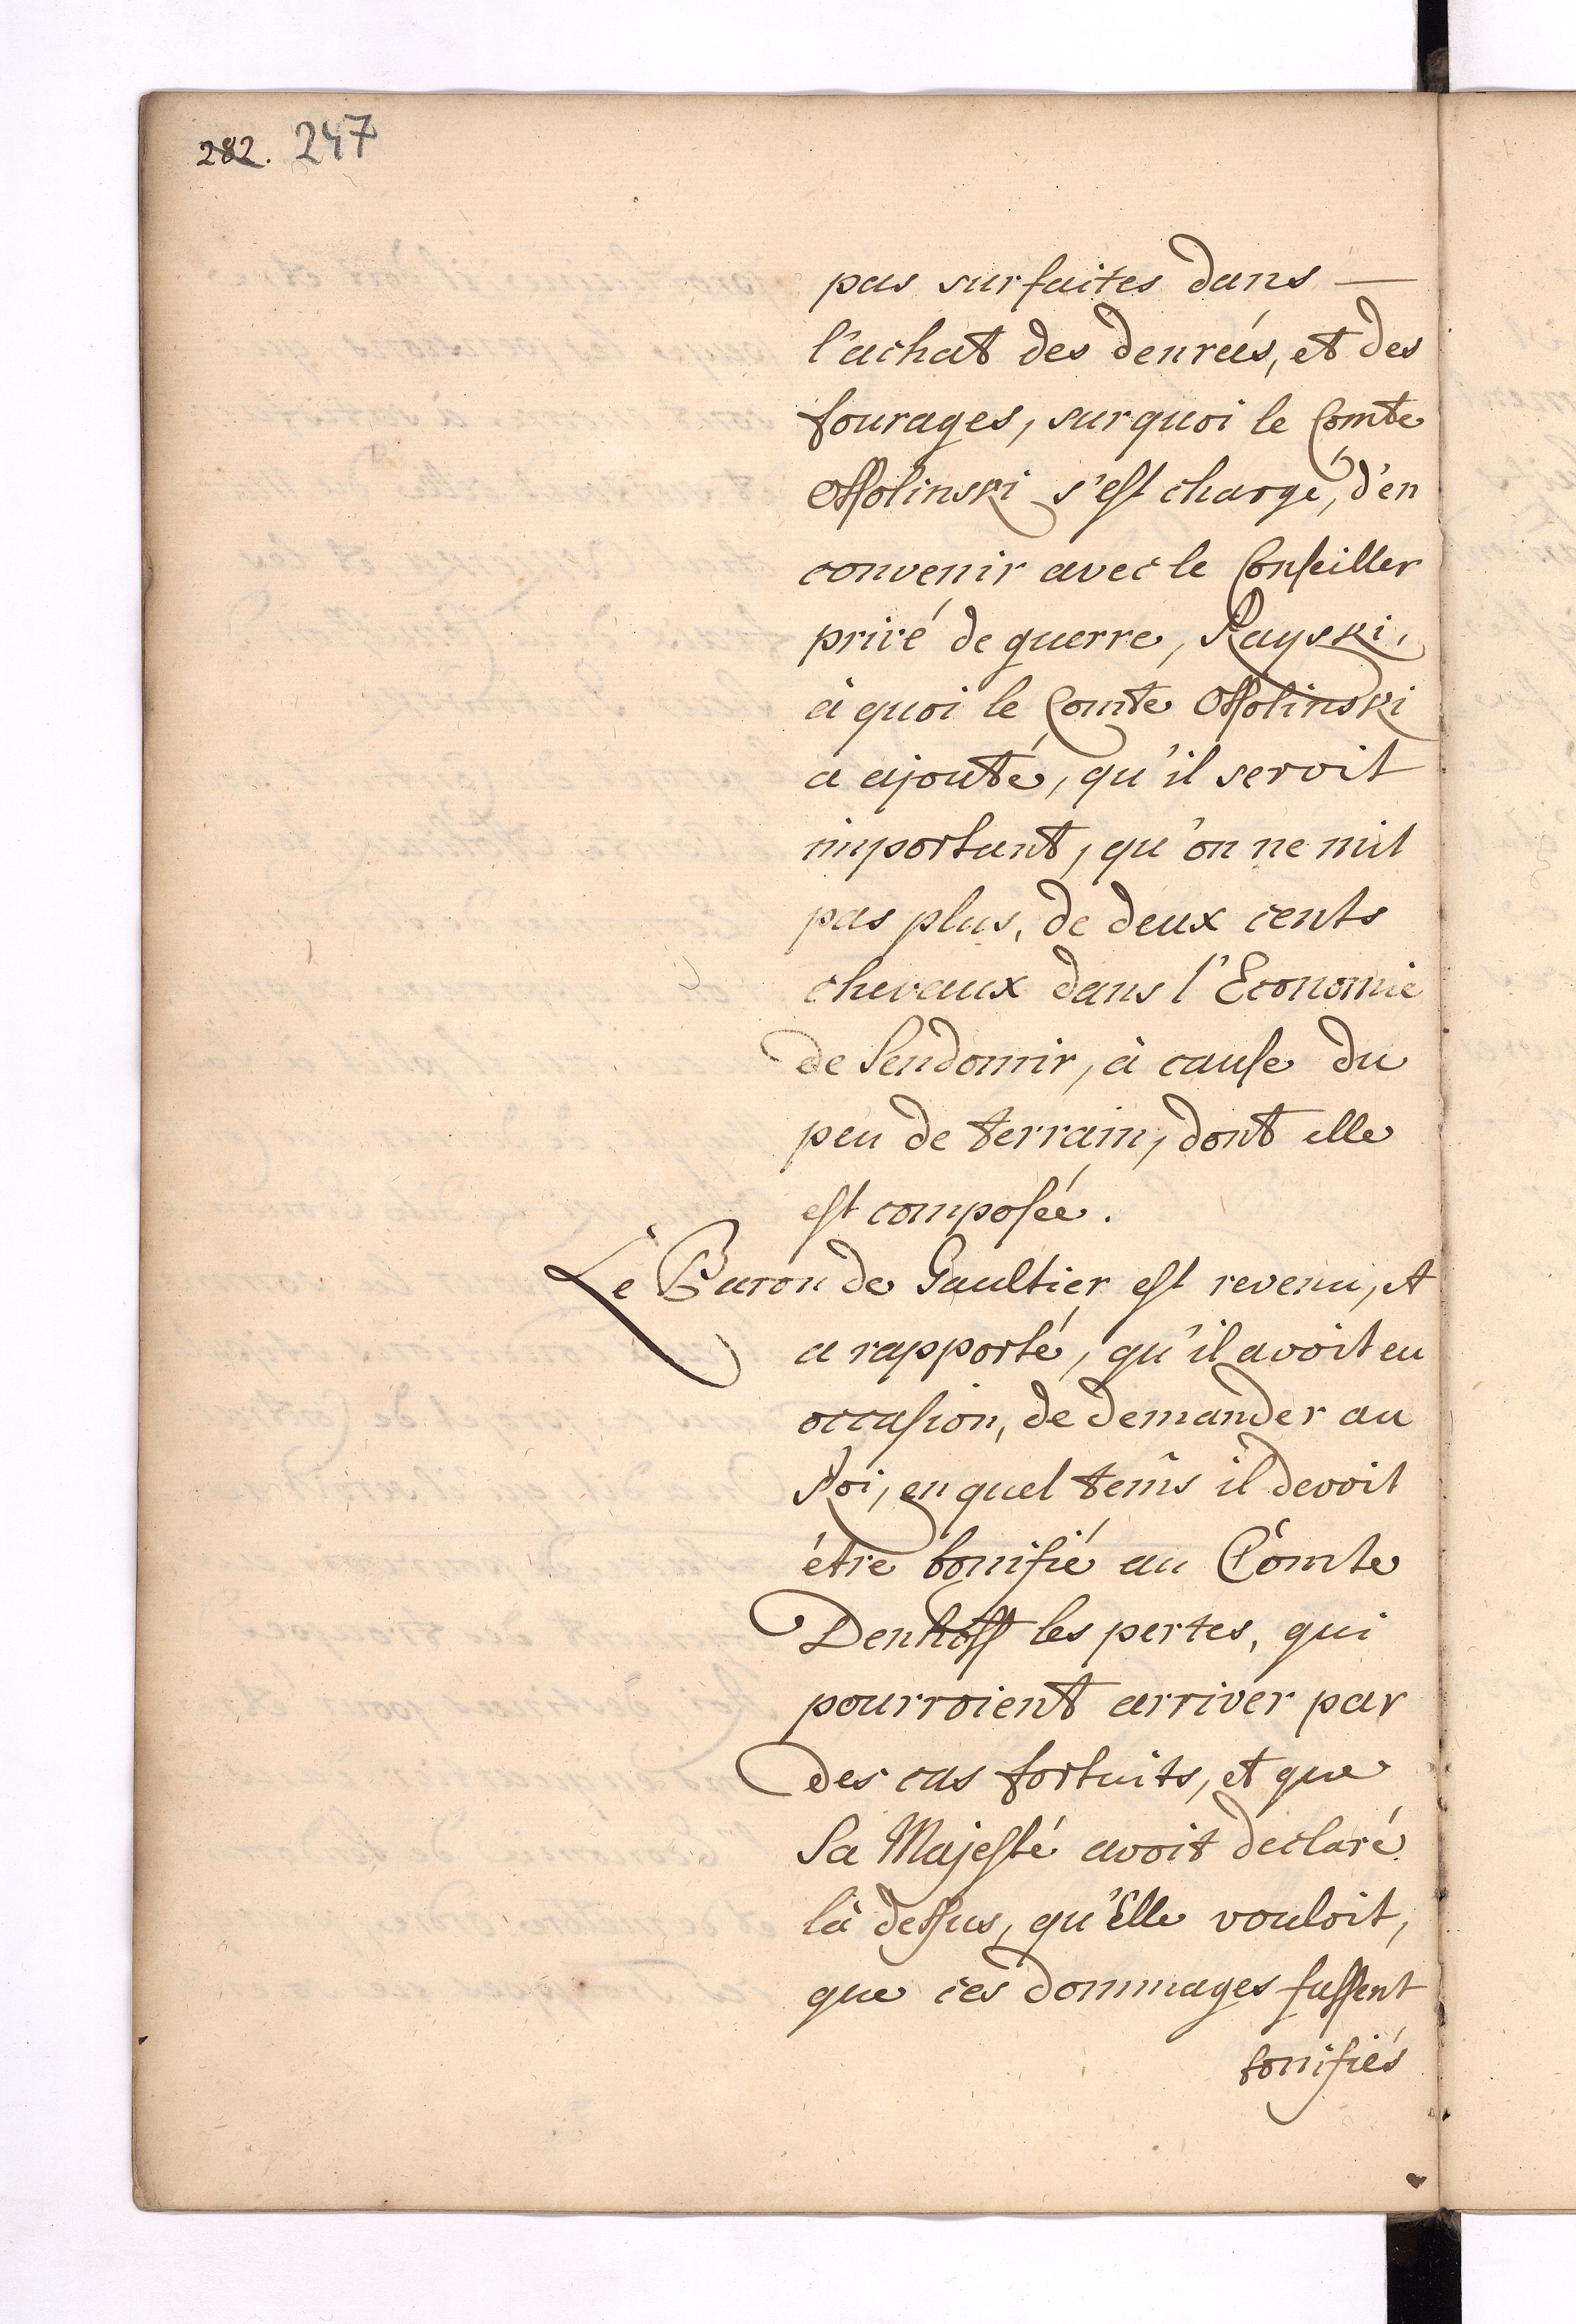 282. 247
pas surfaites dans —
l'achat des denreés, et des
fourages, surquoi le Comte
Ossolinski s'est chargé, d'en
convenir avec le Conseiller
privé de guerre, Rayski,
à quoi le Comte Ossolinski
a ajouté, qu'il seroit
important, qu'on ne mit
pas plus, de deux cents
chevaux dans l'Economie
de Sendomir, à cause du
peu de terrain, dont elle
est composée.
Le Baron de Gaultier est revenu, et
a rapporté, qu'il avoit eu
occasion, de demander au
Roi, en quel tem̃s il devoit
étre bonifié au Comte
Denhoff les pertes, qui
pourroient arriver par
des cas fortuits, et que
Sa Majesté avoit declaré
là dessus, qu'Elle vouloit,
que ces dommages fussent
bonifiés